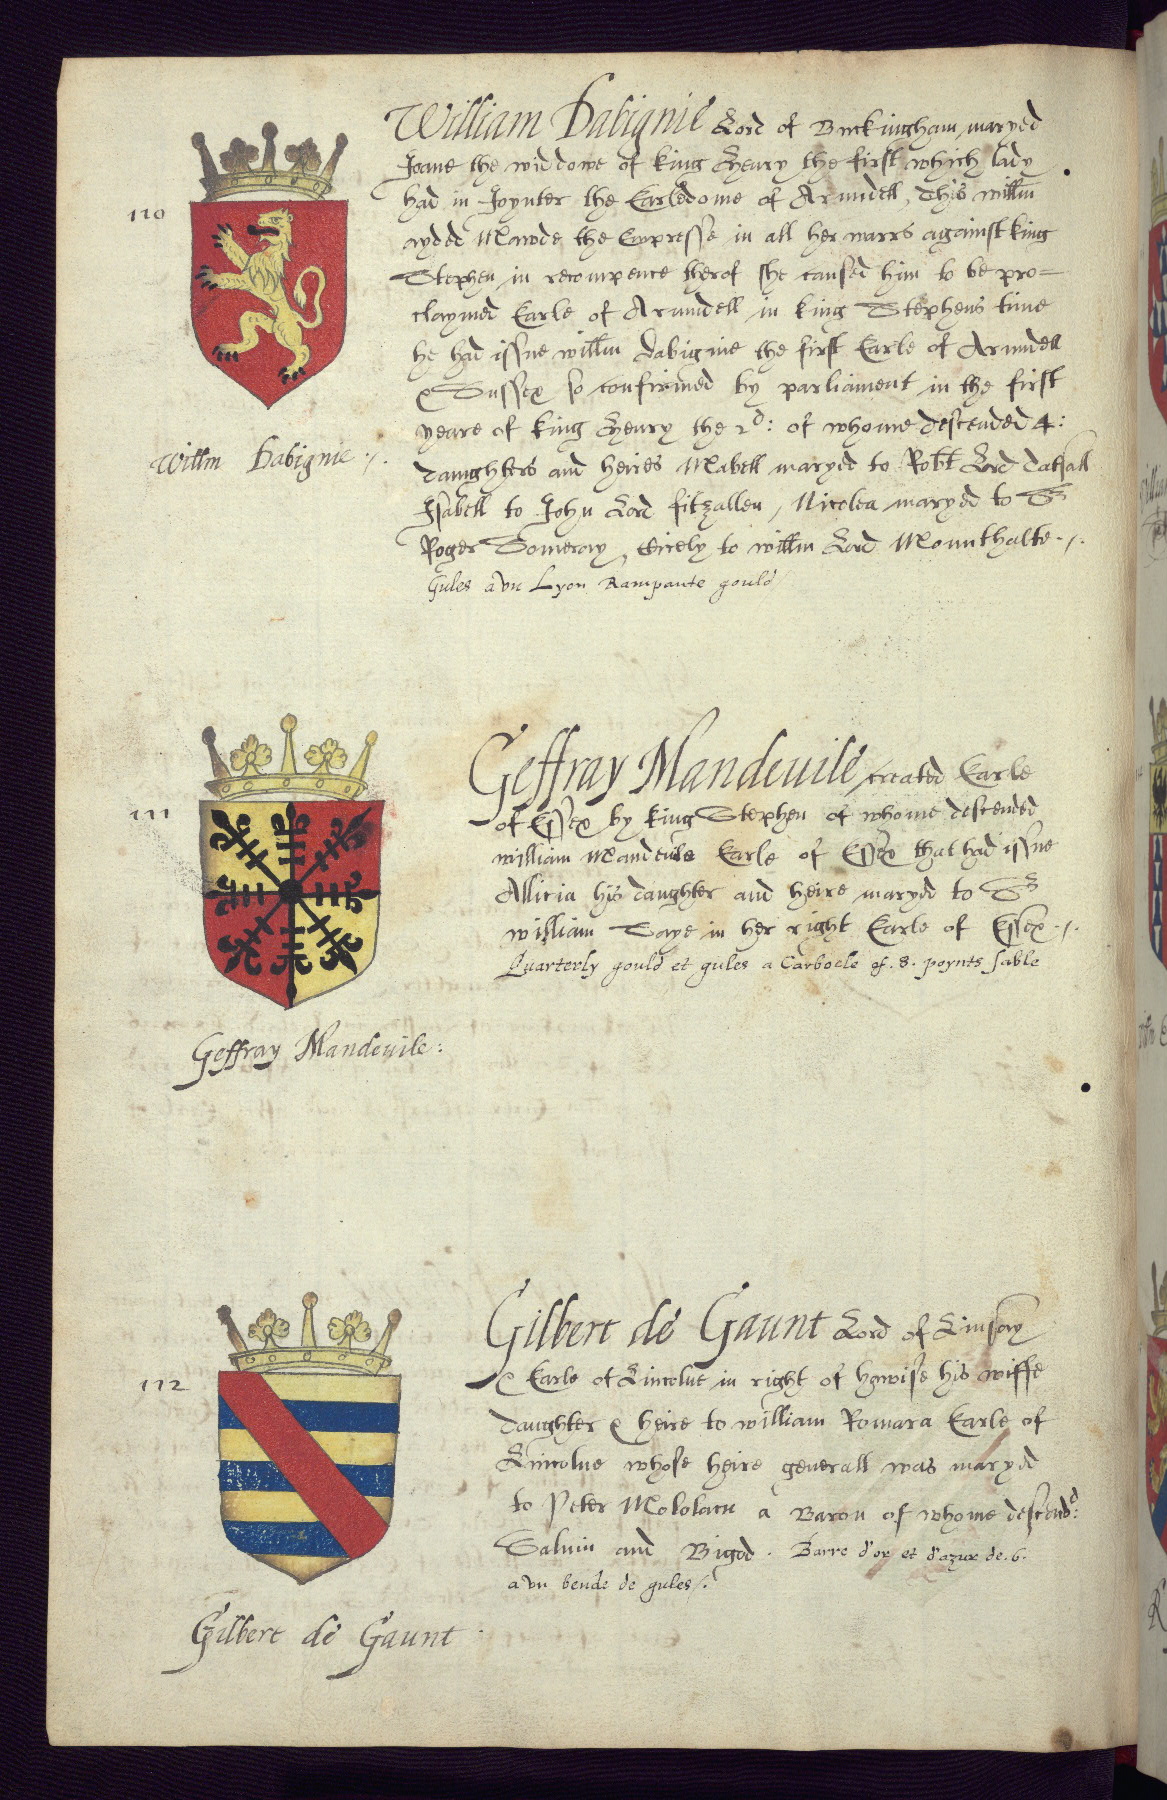 110
William Dabignie Lord of Buckingham, maryed
Joane the widdowe of king Henry the first which lady
had in Joynter the Earledome of Arundell, This willm
ayded Mawde the Empresse in all her warrs against king
Stephen in recompence therof she caused him to be pro=
claymed Earle of Arundell in king Stephens time
he had issue willm Dabignie the first Earle of Arundell
& Sussex so confirmed by parliament in the first
yeare of king Henry the 2d: of whome descended 4:
daughters and heires Mabell maryed to Robt Lord
Isabell to John Lord fitzallen, Nicolea maryed to Sr
Roger Someray, Cicely to willm Lord Mounthalte ./.
Gules a vn Lyon Rampante gould
Willm Dabignie ./.
111
Geffray Mandeuile, created Earle
of Essex by king Stephen of whome descended
william Mandeuile Earle of Essex that had issue
Allicia his daughter and heire maryd to Sr
william Saye in her right Earle of Essex ./.
Quarterly gould et gules a Carbocle of .8. poynts sable
Geffray Mandeuile:
112
Gilbert de Gaunt Lord of Linsey
& Earle of Lincolne in right of hawise his wiffe
daughter & heire to william Romara Earle of
Lincolne whose heire generall was maryd
to Peter Mololacu a Baron of whome descended:
Saluin and Bigod . Barre d'or et d'azur de .6.
a vn bende de gules /.
Gilbert de Gaunt